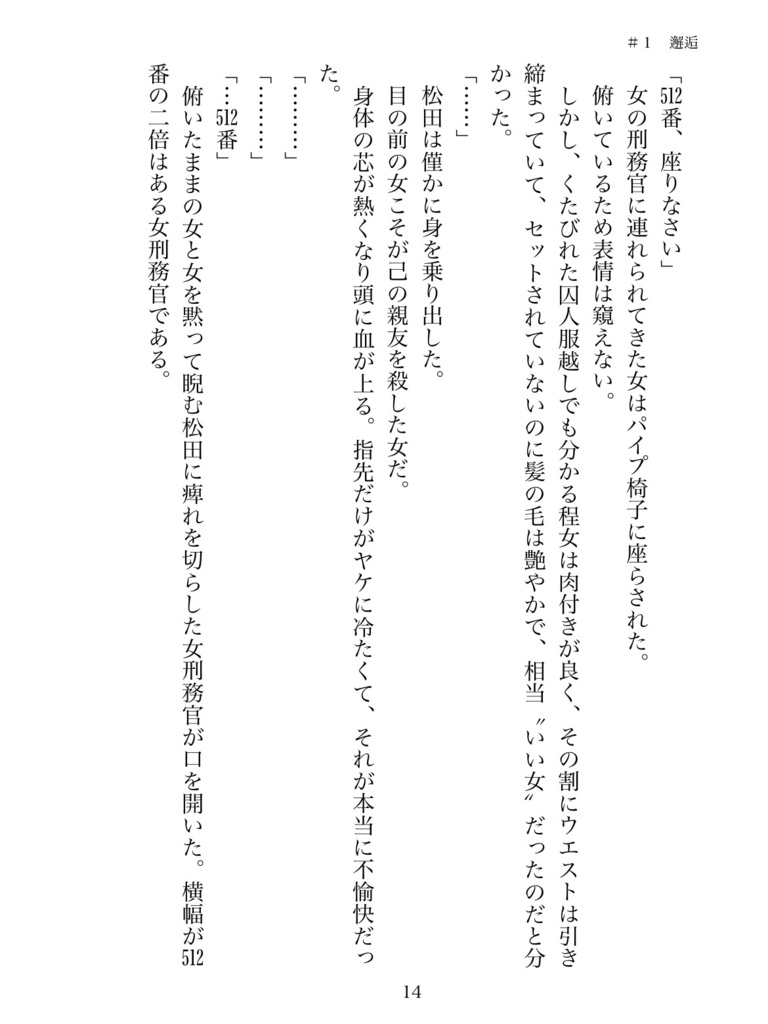 #1 邂逅
「512番、座りなさい」
女の刑務官に連れられてきた女はパイプ椅子に座らされた。
俯いているため表情は窺えない。
しかし、くたびれた囚人服越しでも分かる程女は肉付きが良く、その割にウエストは引き
締まっていて、セットされていないのに髪の毛は艶やかで、相当〝いい女〟だったのだと分
かった。
「……」
松田は僅かに身を乗り出した。
目の前の女こそが己の親友を殺した女だ。
身体の芯が熱くなり頭に血が上る。指先だけがヤケに冷たくて、それが本当に不愉快だっ
た。
「………」
「………」
「…512番」
俯いたままの女と女を黙って睨む松田に痺れを切らした女刑務官が口を開いた。横幅が512
番の二倍はある女刑務官である。
14